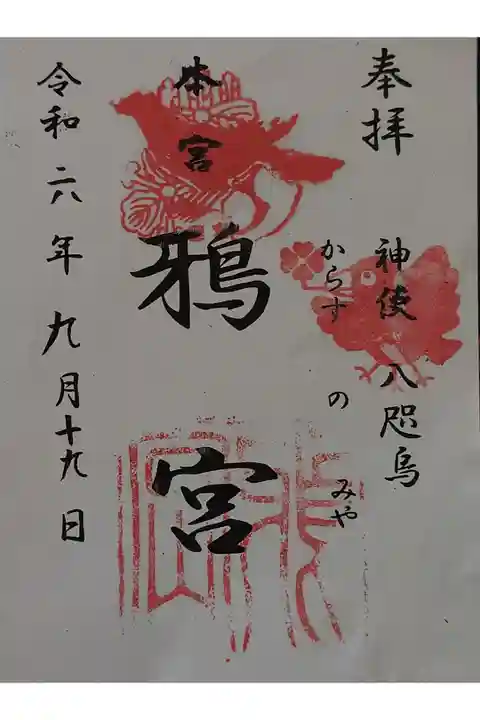 奉拝
神使 八咫烏
からす の みや
本宮
鴉宮
令和六年 九月十九日